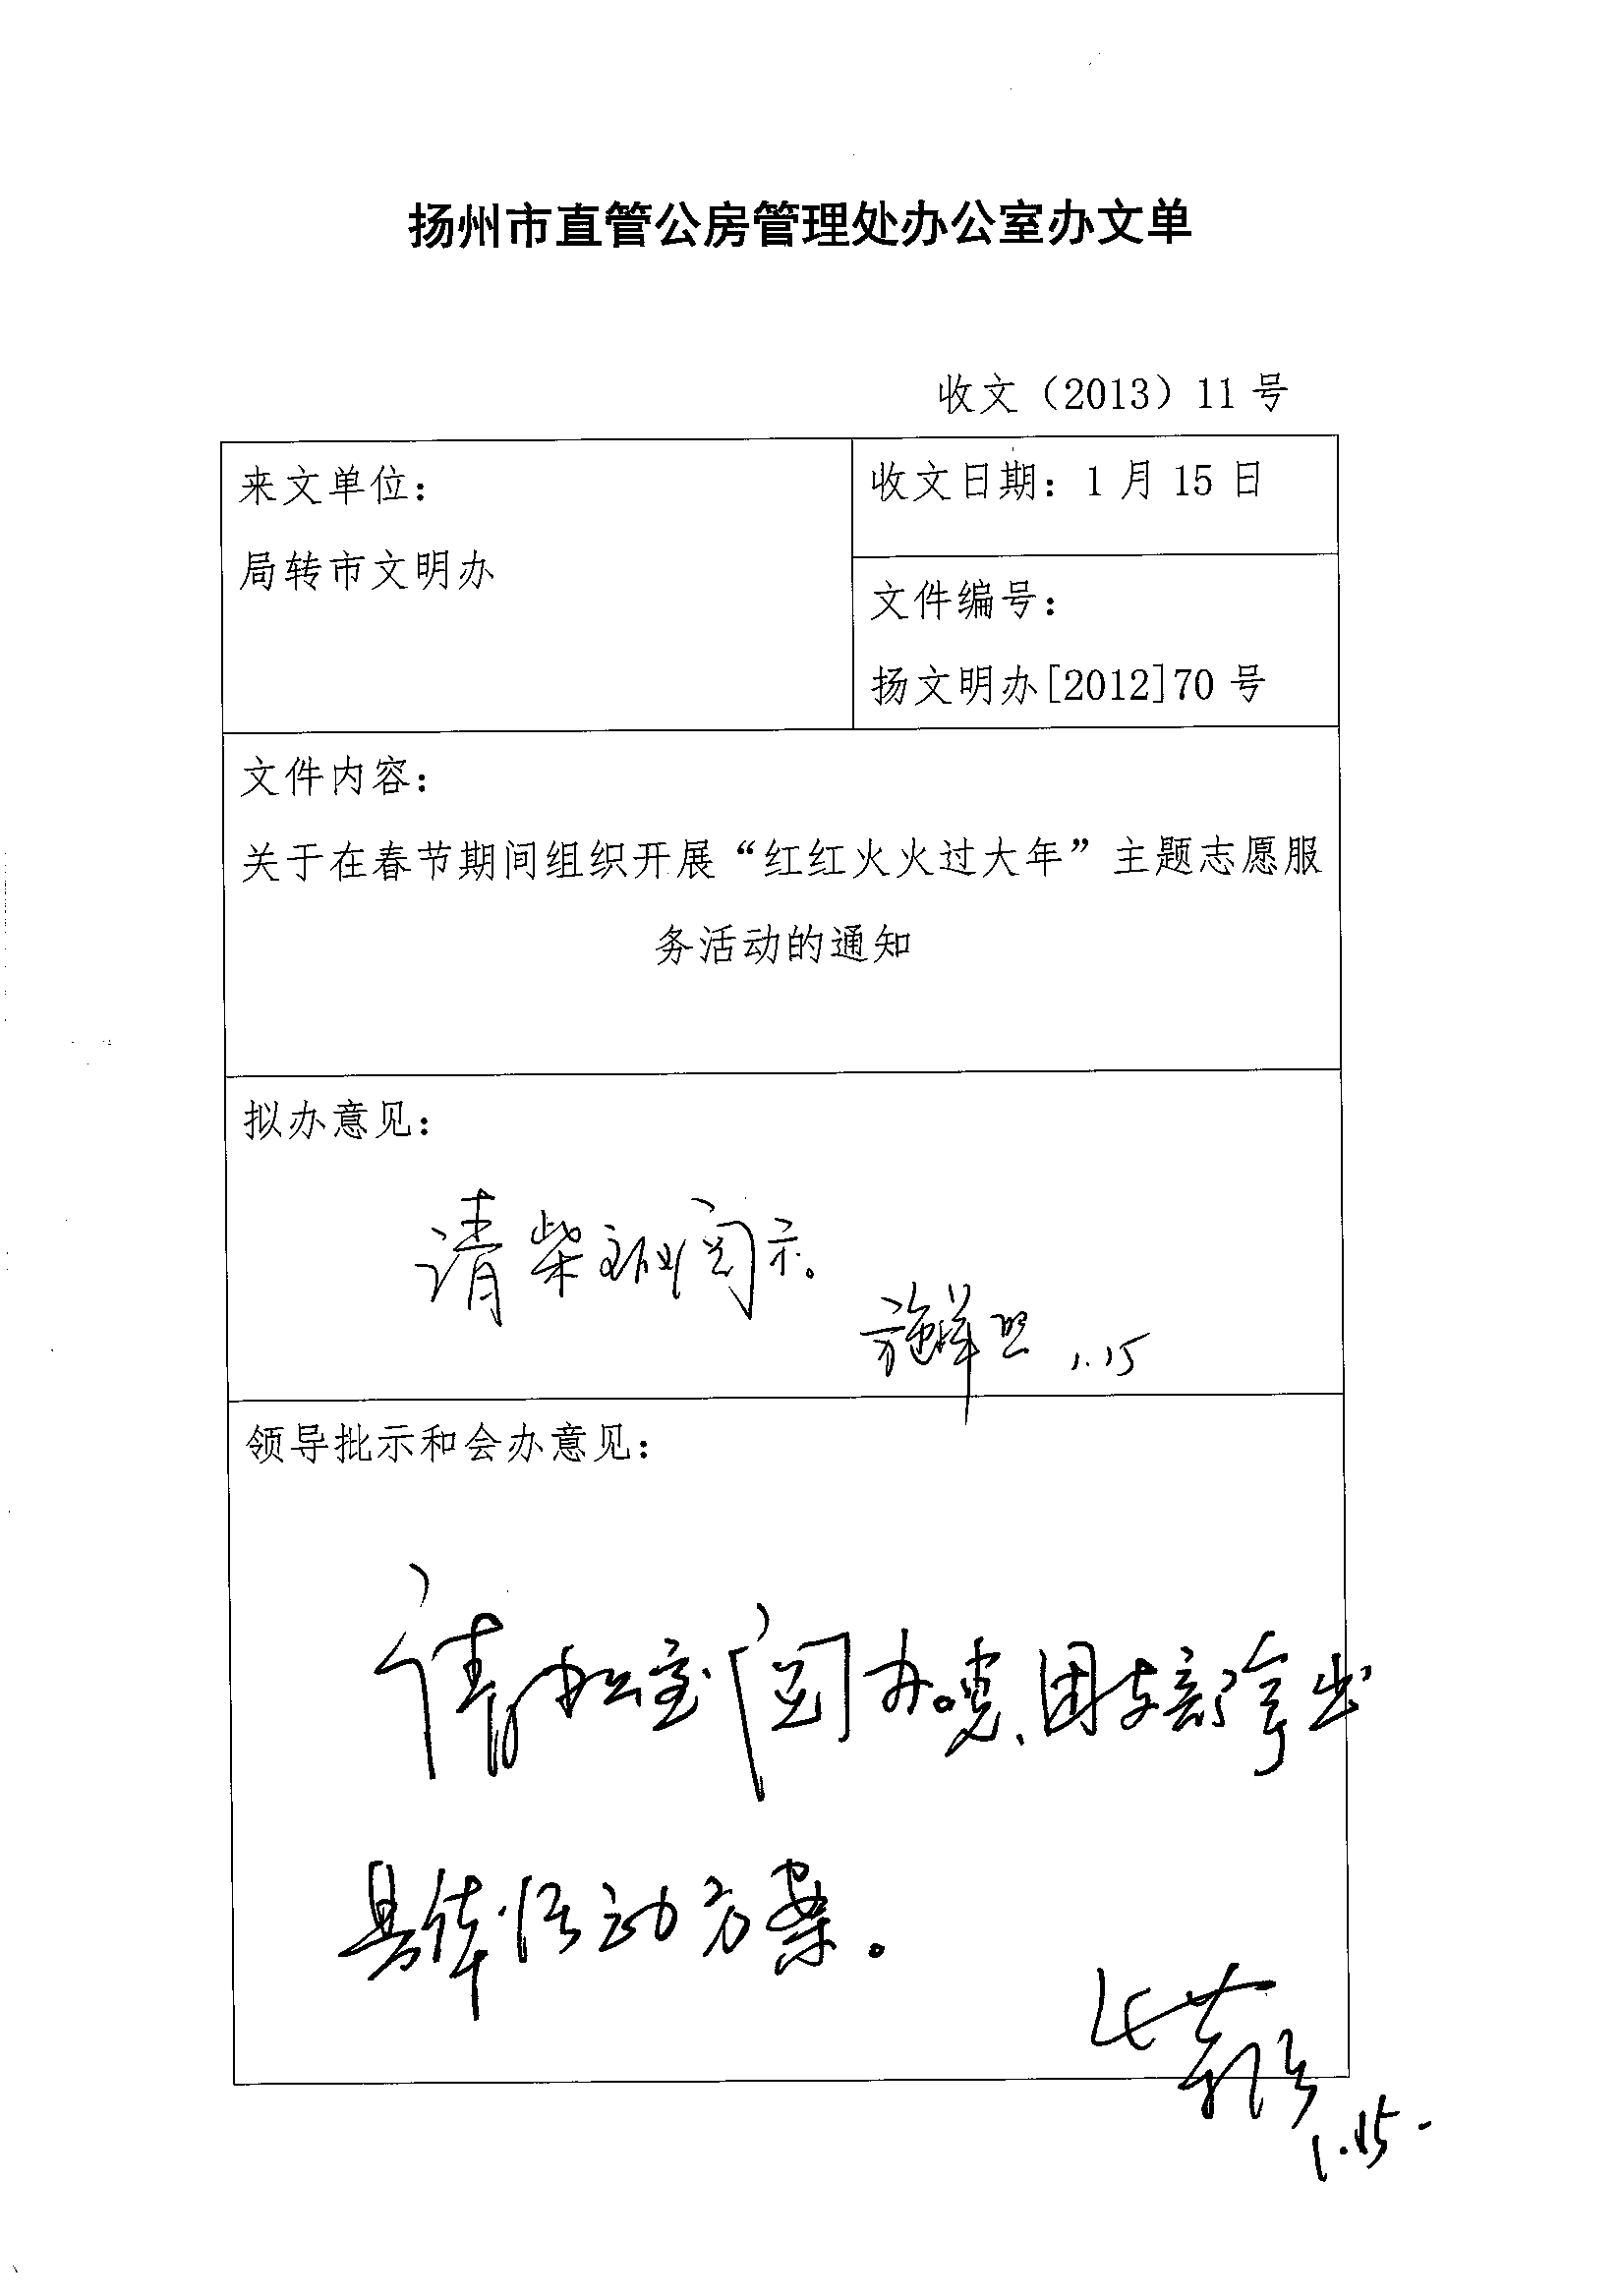 扬州市直管公房管理处办公室办文单
收文（2013）11 号
来文单位：
局转市文明办
收文日期：1 月 15 日
文件编号：
扬文明办[2012]70 号
文件内容：
关于在春节期间组织开展“红红火火过大年”主题志愿服
务活动的通知
拟办意见：
请柴 阅示。
施 1.15
领导批示和会办意见：
请办公室阅办。 、团支部拿出
具体活动方案。
1.15